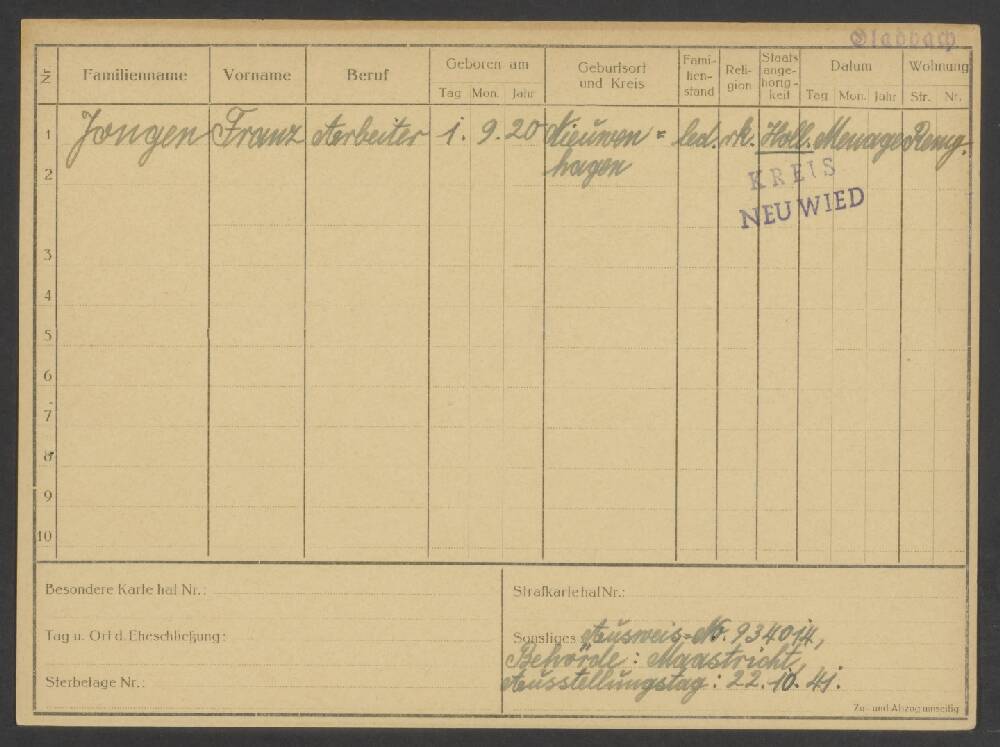 Gladbach
Nr Familienname Vorname Beruf Geboren am Geburtsort und Kreis Fami-lien-stand Reli-gion Staats ange-hörig-keit Datum Wohnung
Tag Mon. Jahr Tag Mon. Jahr Str. Nr.
1 Jongen Franz Arbeiter 1. 9. 20 Nieuwen= led. rk. Holl. Menage Remy.
2 hagen
KREIS
NEUWIED
3
4
5
6
7
8
9
10
Besondere Karte hat Nr.:
Tag u. Ort d. Eheschließung:
Sterbetage Nr.:
Strafkarte hat Nr.:
Sonstiges Ausweis-No. 934014,
Behörde: Maastricht,
Ausstellungstag: 22.10.41.
Zu- und Abzug umseitig